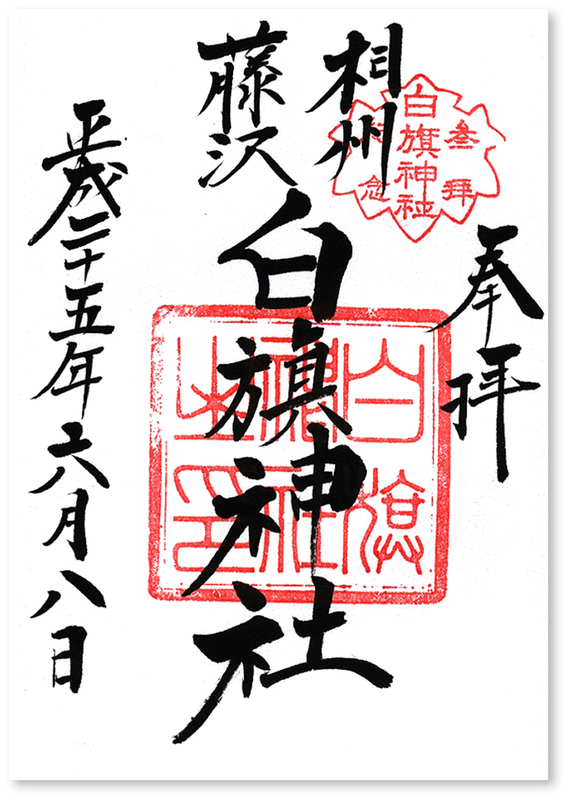 奉拝
参拝
白旗神社
記念
相州
藤沢
白旗神社
白旗
神社
之印
平成二十五年六月八日